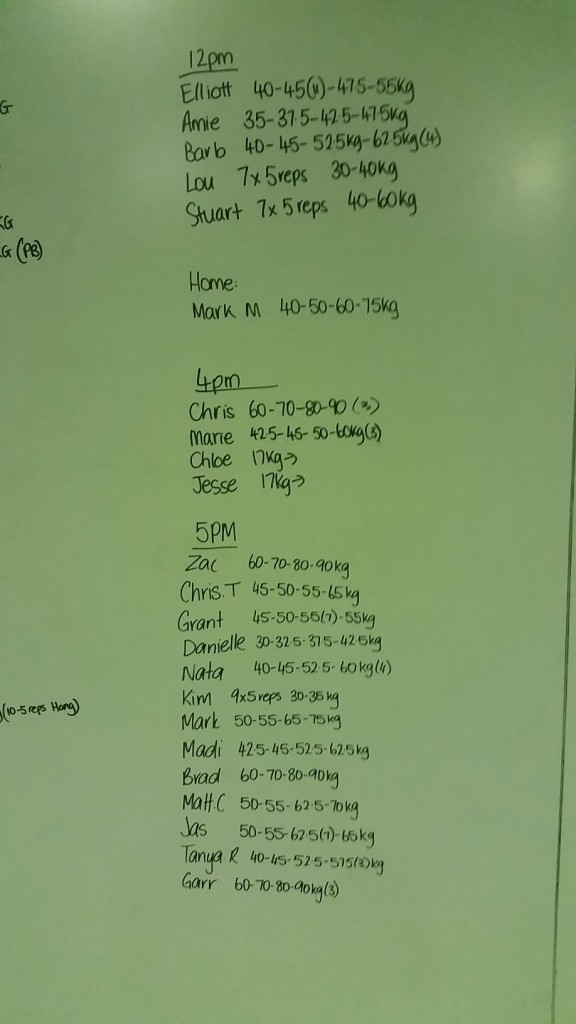 12pm
Elliott 40-45(11)-47.5-55kg
Amie 35-37.5-42.5-47.5kg
Barb 40-45-52.5kg-62.5kg(4)
Lou 7x5reps 30-40kg
Stuart 7x5reps 40-60kg
G
KG
G (PB)
Home:
Mark M 40-50-60-75kg
4pm
Chris 60-70-80-90 (3)
Marie 42.5-45-50-60kg(3)
Chloe 17kg→
Jesse 17kg→
5PM
Zac 60-70-80-90kg
Chris.T 45-50-55-65kg
Grant 45-50-55(7)-55kg
Danielle 30-32.5-37.5-42.5kg
Nata 40-45-52.5-60kg(4)
Kim 9x5reps 30-35kg
(10-5reps Hang)
Mark 50-55-65-75kg
Madi 42.5-45-52.5-62.5kg
Brad 60-70-80-90kg
Matt.C 50-55-62.5-70kg
Jas 50-55-62.5(7)-65kg
Tanya.R 40-45-52.5-57.5(3)kg
Garr 60-70-80-90kg(3)